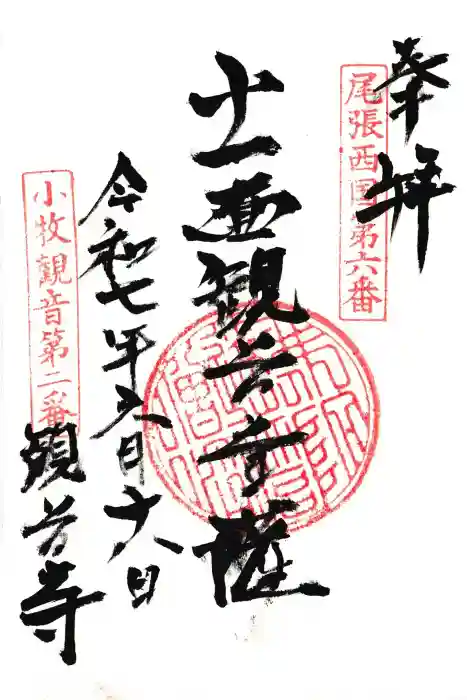 奉拝
尾張西国第六番
十一面観音菩薩
令和七年
小牧觀音第二番
観音寺